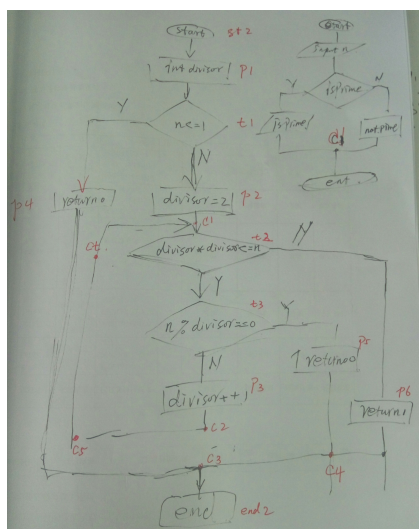 start st2
int divisor p1
Y n<=1 t1
N
p4 return0 divisor=2 p2
c1
t2
divisor*divisor<=n N
Y
t3
n%divisor==0 Y
N return0 p5
divisor++ p3
return1 p6
c2
c5
c3 c4
end end2
start
input n
Y isPrime N
isPrime!